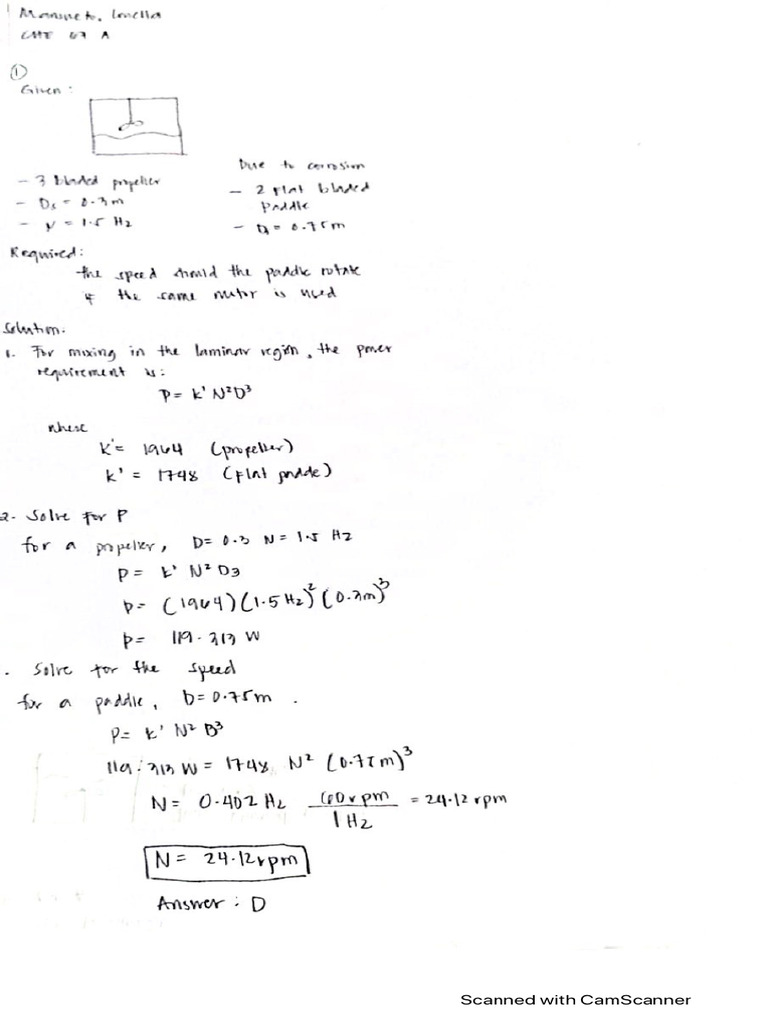 CHE 67 A
①
Given :
- 3 bladed propeller
- Ds = 0.3m
- N = 1.5 Hz
Due to corrosion
- 2 Flat bladed
Paddle
- D = 0.75m
Required:
the speed should the paddle rotate
if the same motor is used
Solution:
1. For mixing in the laminar region, the power
requirement is:
P = k' N²D³
where
k' = 1964 (propeller)
k' = 1748 (Flat paddle)
2. Solve for P
for a propeller, D= 0.3 N = 1.5 Hz
P = k' N² D3
P = (1964)(1.5 Hz)² (0.3m)³
P = 119.313 W
. Solve for the speed
for a paddle, D= 0.75m .
P= k' N² D³
119.313 W = 1748 N² (0.75m)³
N = 0.402 Hz 60rpm/1 Hz = 24.12 rpm
N = 24.12rpm
Answer : D
Scanned with CamScanner